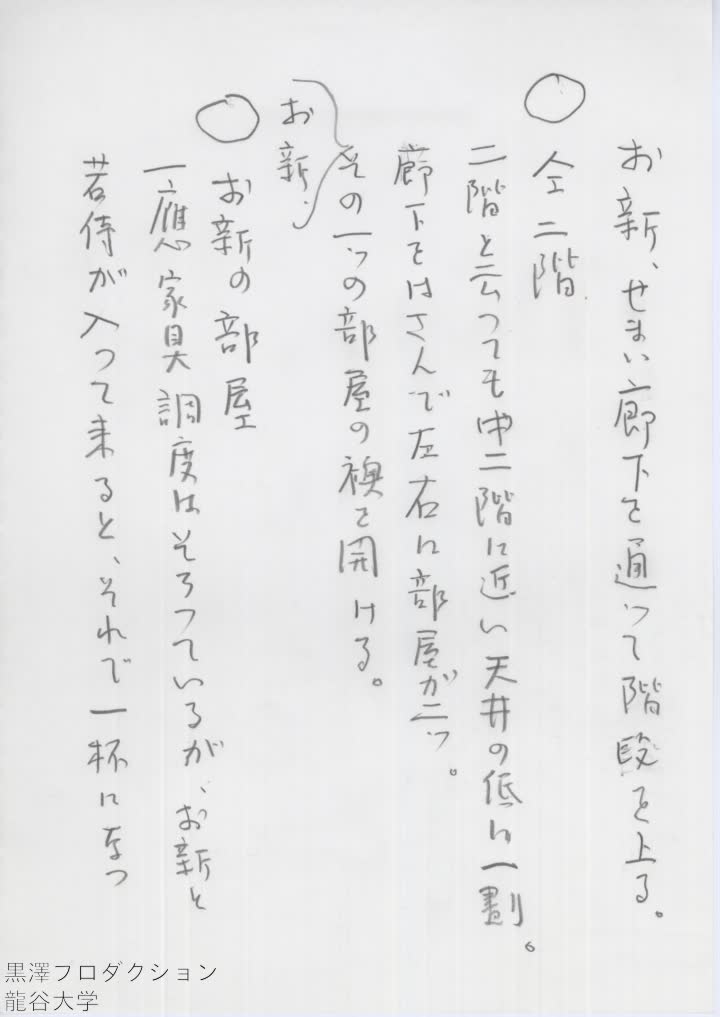 お新、せまい廊下を通つて階段を上る。
○仝 二階
二階と云つても中二階に近い天井の低い一劃。
廊下をはさんで左右に部屋が二ツ。
お新、その一つの部屋の襖を開ける。
○お新の部屋
一應家具調度はそろつているが、お新と
若侍が入つて来ると、それで一杯になつ
黒澤プロダクション
龍谷大学